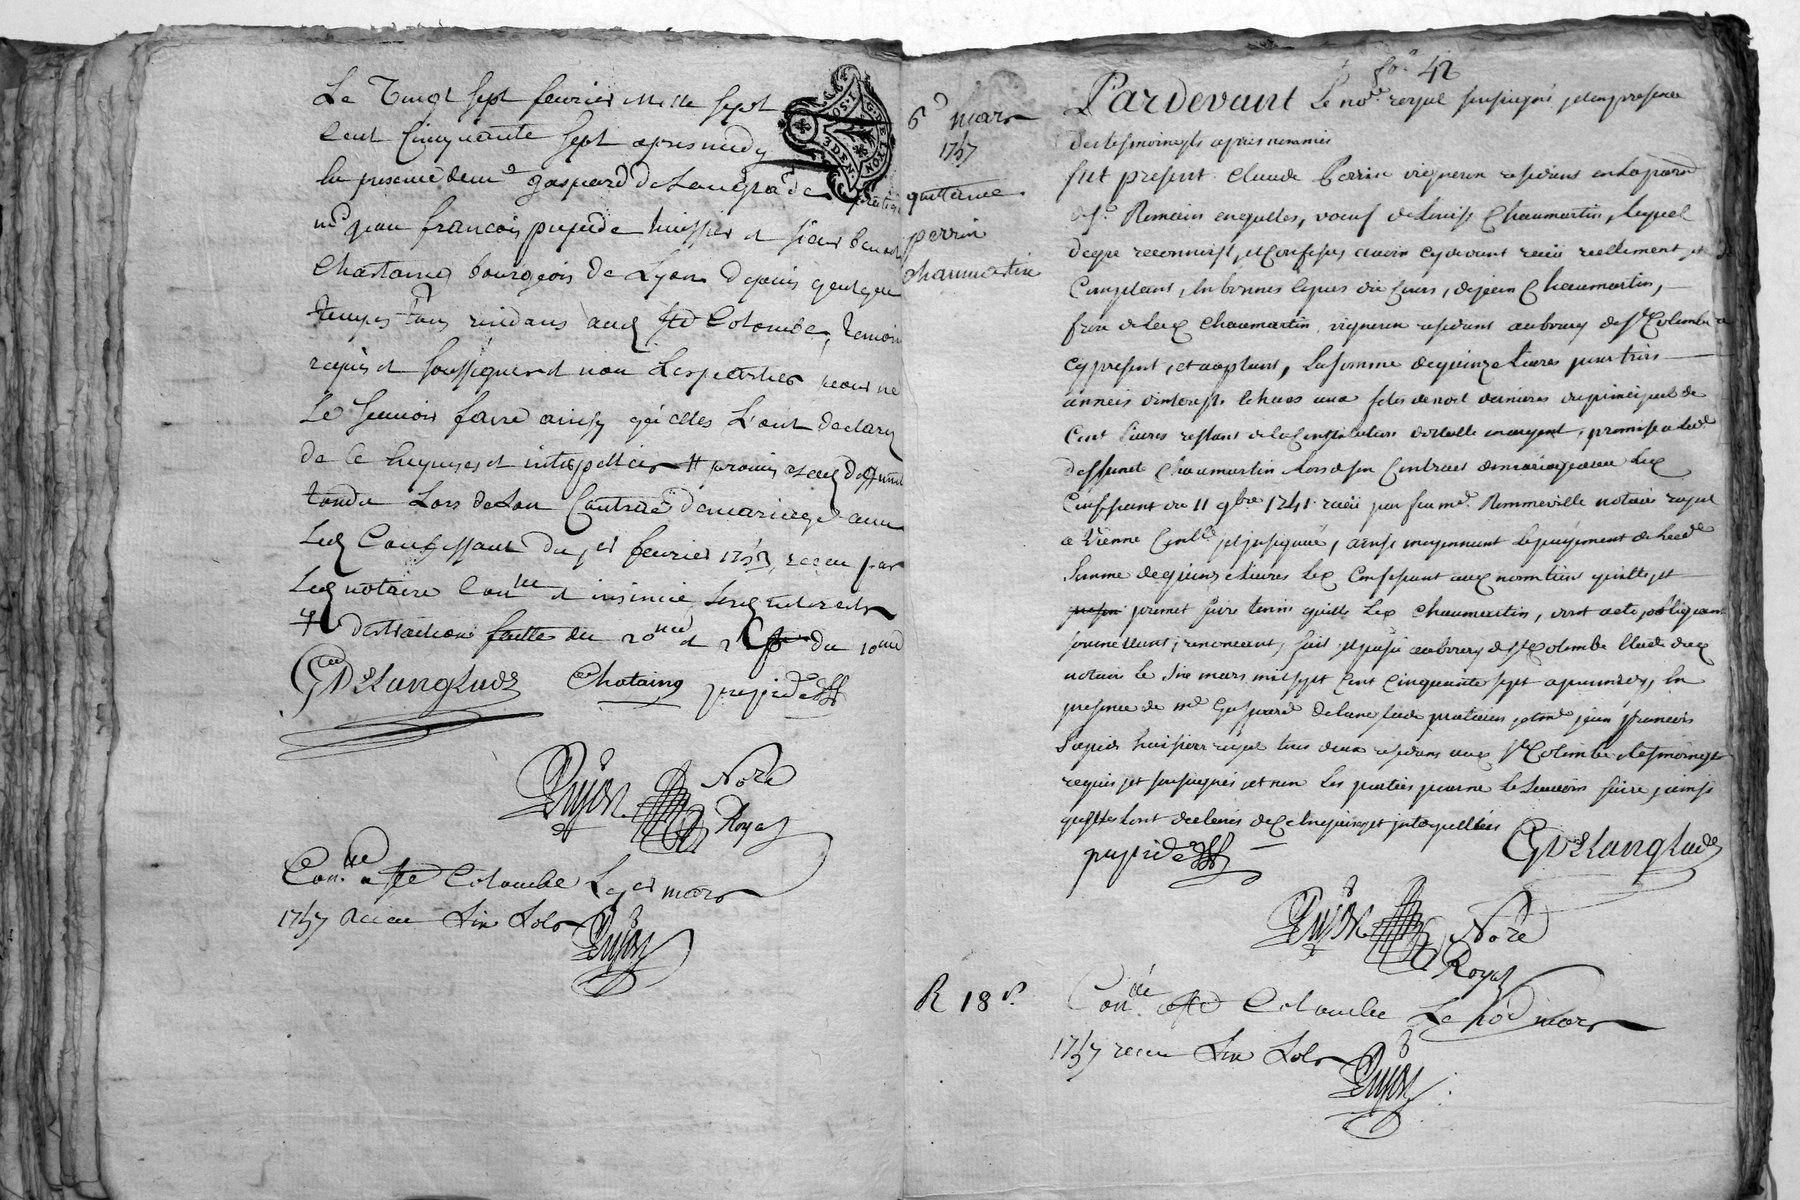 Le Vingt sept fevrier mille sept
Cent Cinquante sept apres midy
En presence de me gaspard de Langlade praticien
me jean francois prejude huissier et sieur benoit
Chastaing bourgeois de Lyon depuis quelque
temps tous residans aud ste Colombe, temoins
requis et soussignes et non Les parties pour ne
Le scavoir faire ainsy qu'elles L'ont declaré
de ce enquises et interpellées # promis aud deffunt
Lors de son Contract de mariage avec
Led Confessant du 1er fevrier recu par
Led notaire Conlle et insinué
# distraction faitte du
GDeLanglade Chataing prejude
Dujon Nore
Royal
Conlle a ste Colombe Le 1er mars
1757 recu six sols
Dujon
G DE LYON
3 DEN
fo. 42
6e mars
1757
quittance
perrin
chaumartin
Pardevant Le nore royal soussigné et en presence
des tesmoings apres nommés
fut present Claude Perrin vigneron residant en la paroisse
de St Romain en galles, veuf de Louise Chaumartin, lequel
de gre reconnoist, et Confesse avoir cy devant recu reellement et
Comptant, en bonnes especes du cours, de jean Chaumartin,
frere de lad Chaumartin, vigneron residant au bourg de ste Colombe
cy present, et acceptant, La somme de quinze Livres pour trois
années d'interests echues aux fetes de noel dernieres du principal de
Cent Livres restant de la Constitution dotalle en argent, promise a lad
deffunte Chaumartin lors de son Contract de mariage avec Led
Confessant du 11 9bre 1741 recu par feu me Remmeville notaire royal
a Vienne Conlle et insinué, ainsi moyennant le payement de lad
Somme de quinze Livres Led Confessant aux noms tient quitte et
promet faire tenir quitte Led Chaumartin, dont acte, obligeant
soumettant, renonceant, fait et passé au bourg de ste Colombe Etude dud
notaire le Six mars mil sept Cent Cinquante sept apres midy, En
presence de me Gaspard de Langlade praticien, et me jean francois
prejude huissier royal tous deux residans aud ste Colombe tesmoings
requis et soussignés et non Les parties pour ne Le scavoir faire, ainsi
qu'elles Lont declarés de ce enquises et interpellées
prejude GDeLanglade
Dujon Nore
Royal
R 18 s.
Conlle a ste Colombe Le mars
1757 recu six sols
Dujon